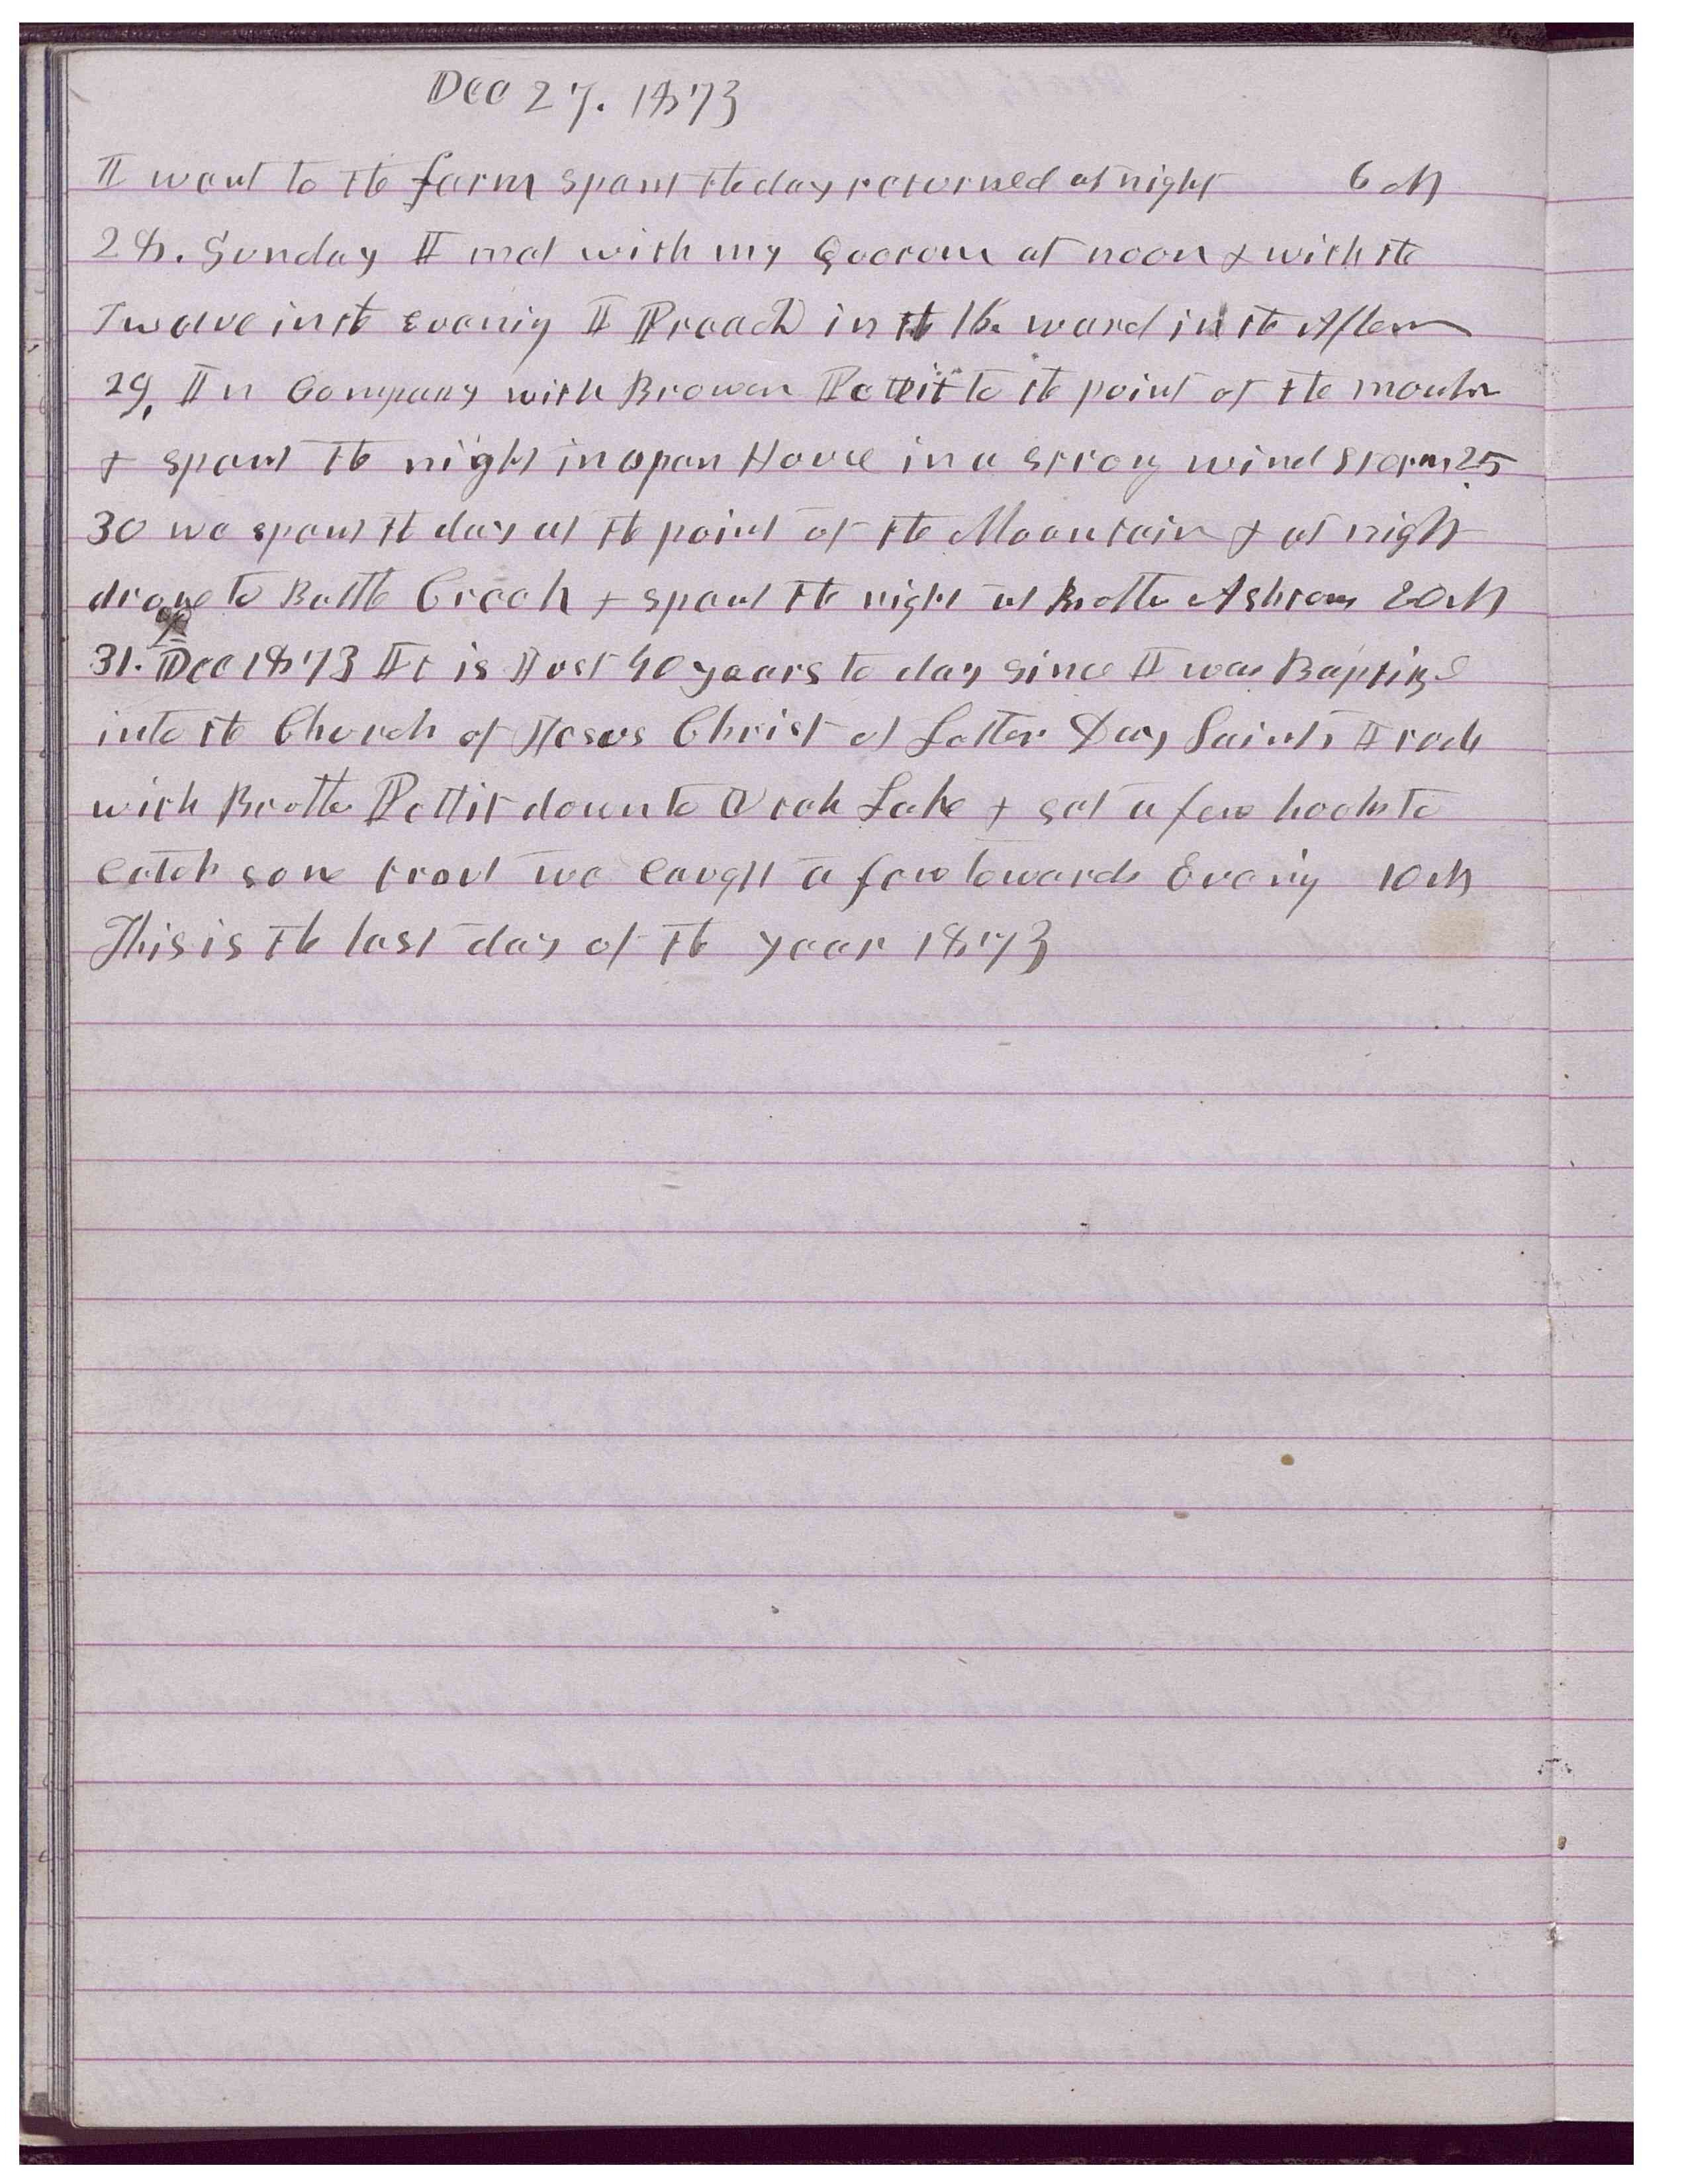 Dec 27. 1873
I went to the farm spent the day returned at night 6 M
28. Sunday I met with my Quorum at noon & with the
Twelve in the Evenig I Preachd in the 16. ward in the Aftern
29, In Company with Brown Pettit to the point of the mountn
& spent the night in open House in a strong wind storm 25
30 we spent the day at the point of the Mountain & at night
drove to Battle Creek & spent the night at Brother Ashtons 20 M
31. Dec 1873 It is Just 40 years to day since I was Baptized
into the Church of Jesus Christ of Latter Day Saints I rode
with Brother Pettit down to Utah Lake & set a few hooks to
catch some trout we caught a few towards Evenig 10 M
This is the last day of the year 1873